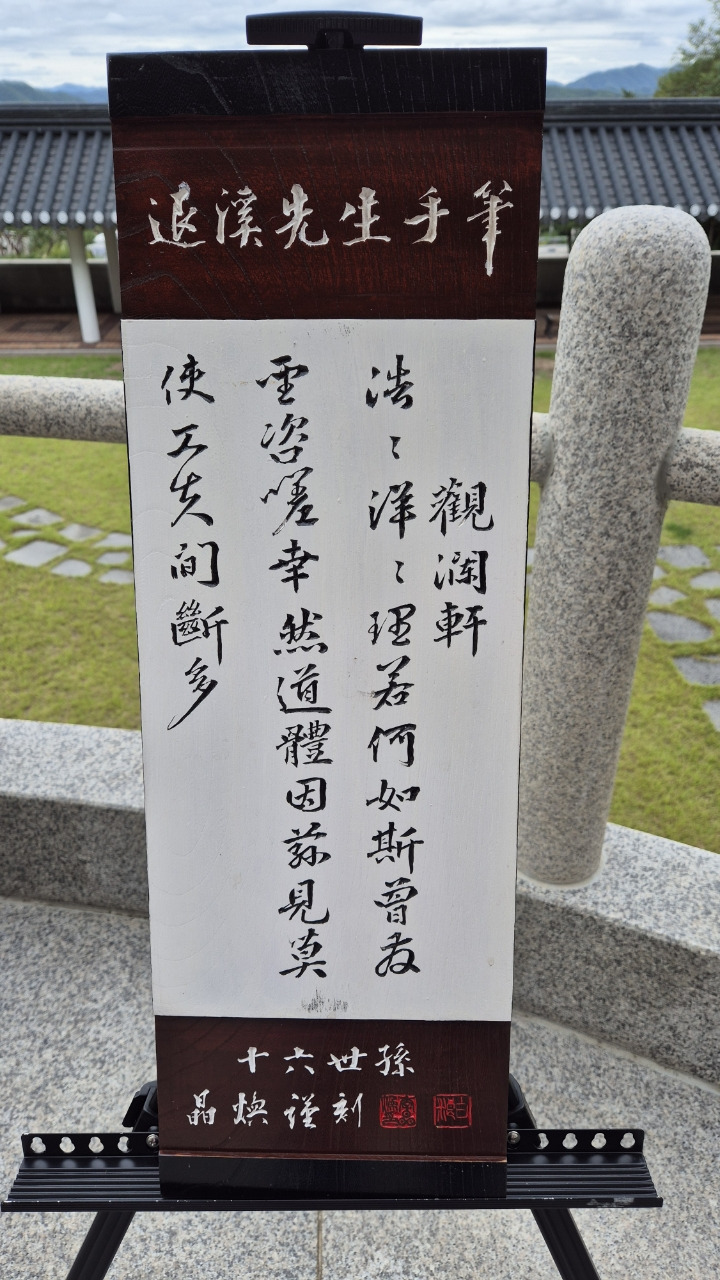 退溪先生手筆
觀瀾軒
浩〻洋〻理若何如斯曾發
聖咨嗟幸然道體因玆見莫
使工夫間斷多
十六世孫
晶煥謹刻